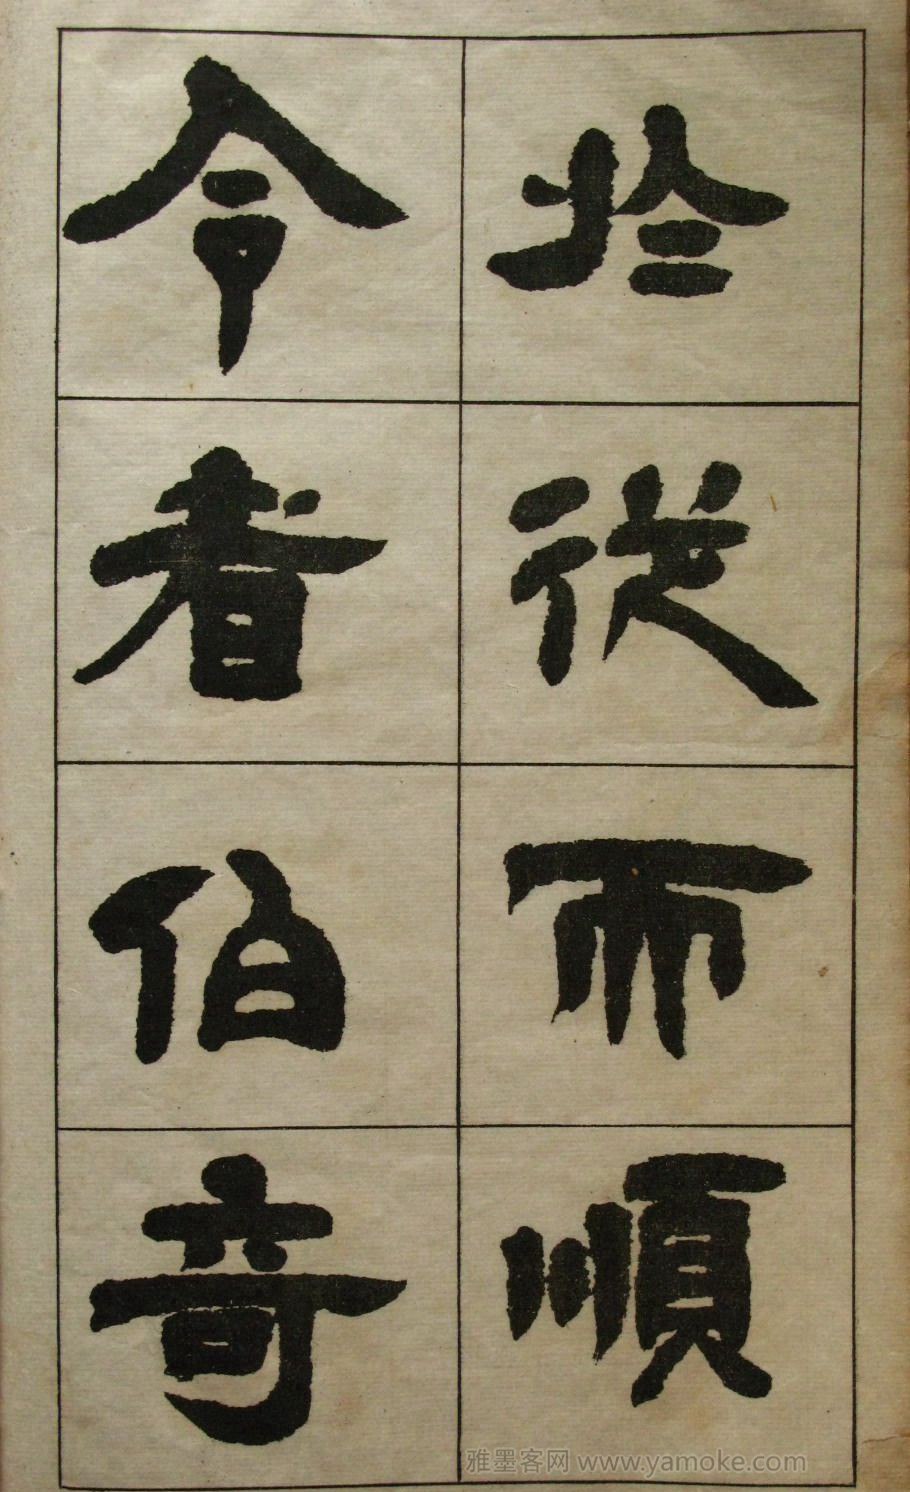 於從而順
令者伯奇
雅墨客网 www.yamoke.com